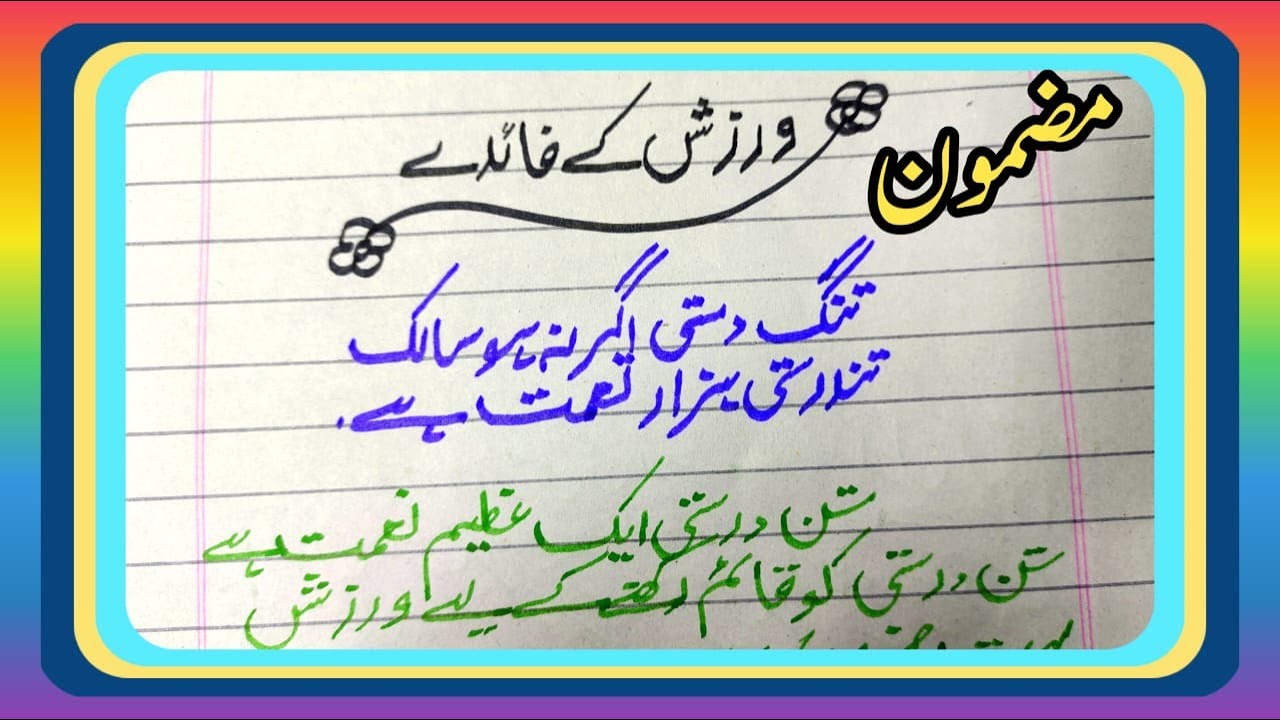 مضمون
ورزش کے فائدے
تنگ دستی اگر نہ ہو سالک
تندرستی ہزار نعمت ہے۔
تن درستی ایک عظیم نعمت ہے
تن درستی کو قائم رکھنے کے لیے ورزش